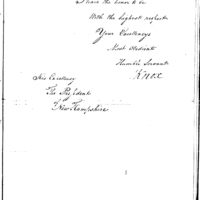 I have the honor to be
With the highest respect
Your Excellencys
Most obedient
Humble Servant
H Knox
His Excellency
The President
of New Hampshire